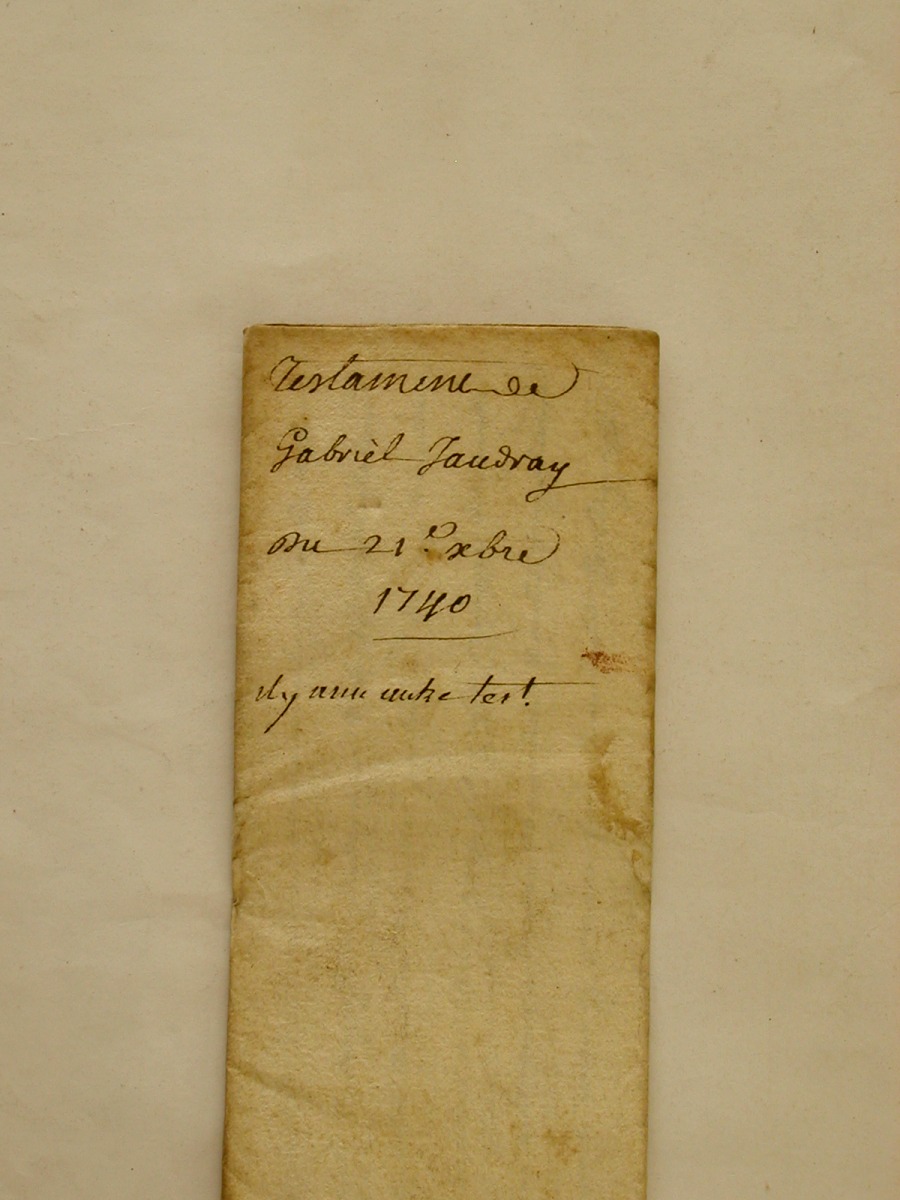 Testament de
Gabriel Jaudray
Du 21e. xbre
1740
il y a un autre test.